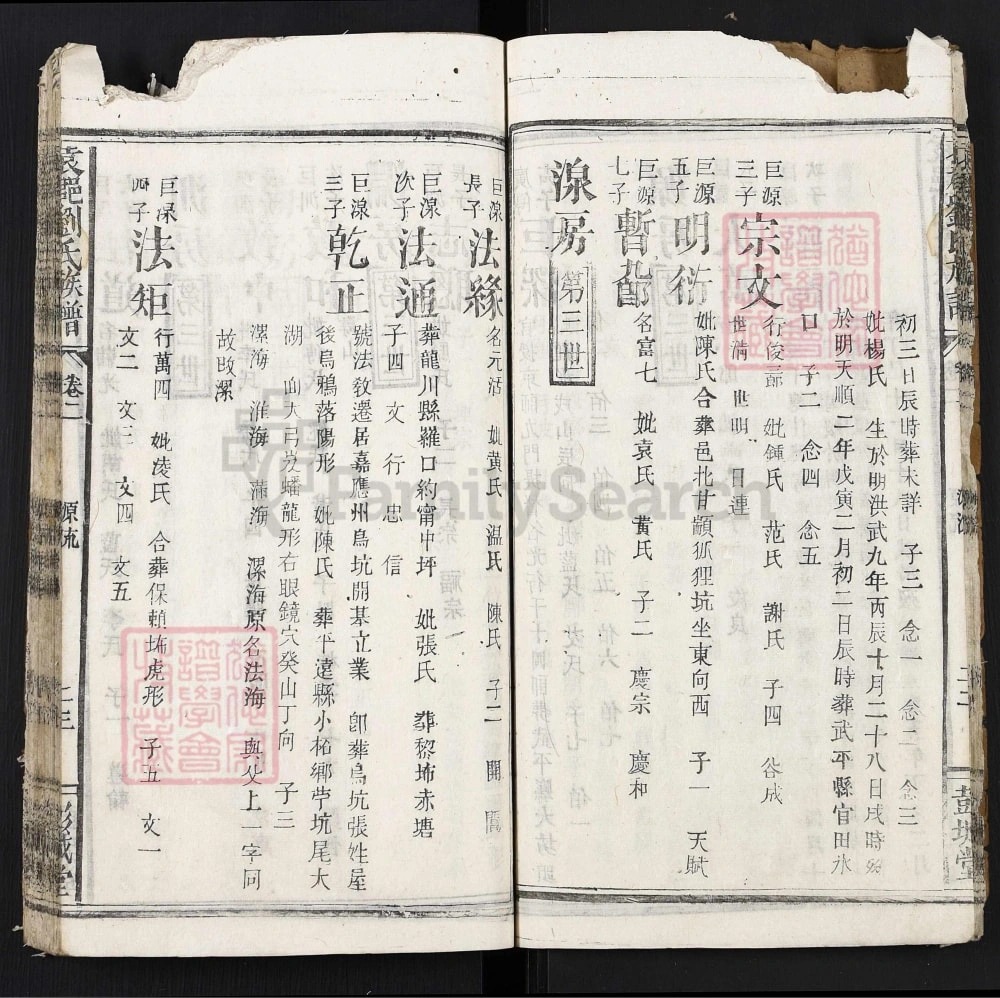 初三日辰時葬未詳 子三 念一 念二 念三
妣楊氏 生於明洪武九年丙辰十月二十八日戌時歿
於明天順二年戊寅二月初二日辰時葬武平縣官田水
口 子二 念四 念五
巨源三子 宗文 行俊 妣鍾氏 范氏 謝氏 子四 谷成
世清 世明 日連
巨源五子 明衍 妣陳氏合葬邑北甘顙狐狸坑坐東向西 子一 天賦
巨源七子 暫 名富七 妣袁氏 黃氏 子二 慶宗 慶和
湶房 第三世
巨湶長子 法緣 名元 妣黄氏 温氏 陳氏 子二 開
巨湶次子 法通 葬龍川縣羅口約甯中坪 妣張氏 葬黎㘵赤塘
子四 文 行 忠 信
巨湶三子 乾止 號法敎遷居嘉應州烏坑開基立業 卽葬烏坑張姓屋
後烏鴉落陽形 妣陳氏 葬平遠縣小柘鄉苧坑尾大
湖 山大弓岌蟠龍形右眼鏡穴癸山丁向 子三
漯海 淮海 蒲海 漯海原名法海 與父上一字同
故改漯
巨湶四子 法矩 行萬四 妣凌氏 合葬保賴㘵虎形 子五 文一
文二 文三 文四 文五
袁 劉氏族譜 卷二 源流 二三 彭城堂
彭城堂
FamilySearch